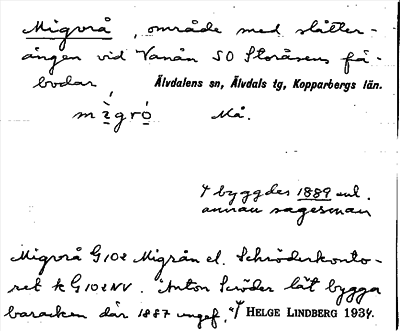 Migvrå, område med slåtter-
ängen vid Vanån SO Storåsens fä-
bodar, Älvdalens sn, Älvdals tg, Kopparbergs län.
mìgró Må.
⌿ byggdes 1889 enl.
annan sagesman
Migvrå G102 Migrån el. Schröderkonto-
ret k G102NV. "Anton Scröder lät bygga
baracken där 1887 ungef."⌿ HELGE LINDBERG 1934.